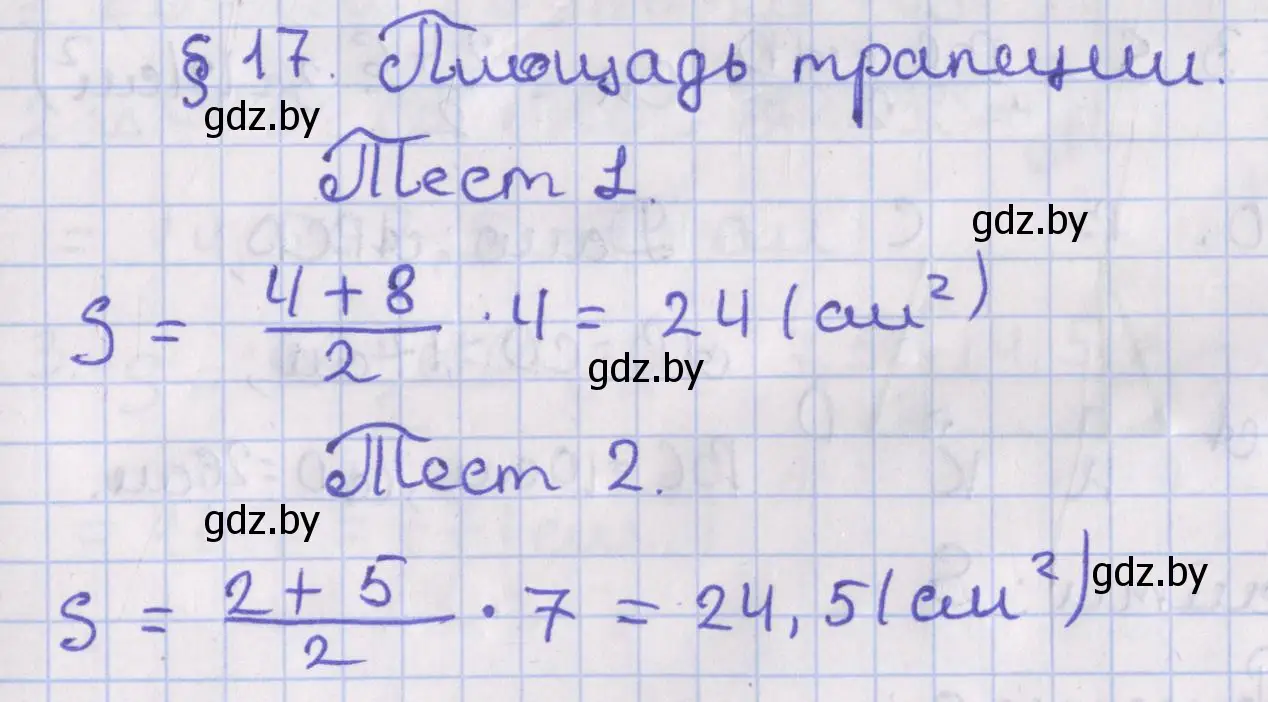 § 17. Площадь трапеции.
gdz.by
Тест 1.
gdz.by
S = (4 + 8)/2 · 4 = 24 (см²)
gdz.by
Тест 2.
gdz.by
S = (2 + 5)/2 · 7 = 24,5 (см²)
gdz.by